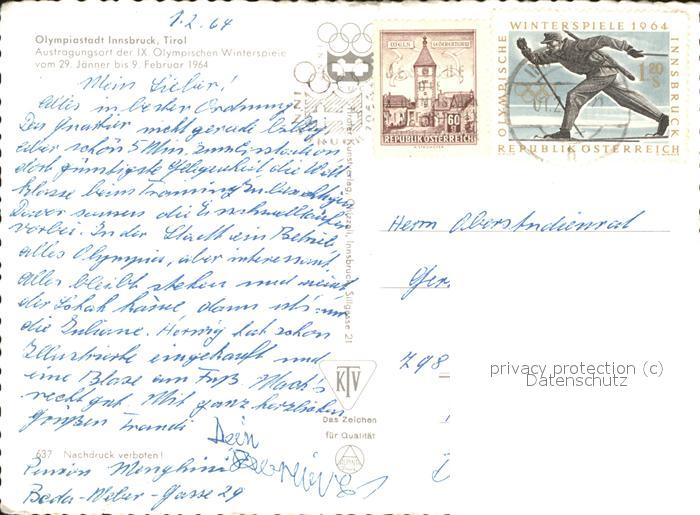 1.2.64
Olympiastadt Innsbruck, Tirol
Austragungsort der IX. Olympischen Winterspiele
vom 29. Jänner bis 9. Februar 1964
Mein Lieber!
Alles in bester Ordnung
Das Quartier nicht gerade billig
aber schön 5 Min. zum Eisstadion
dort günstigste Gelegenheit die Welt
klasse beim Training zu besichtigen
Davor sausen die Eisschnelläufer
vorbei. In der Stadt ein Betrieb,
alles Olympia, aber interessant.
Alles bleibt stehen und meint
der Schah käme, dann ist's nur
die Juliane. Herwig hat schon
Illustrierte eingekauft und
eine Blase am Fuß. Mach's
recht gut. Mit ganz herzlichen
Grüßen Traudi
Dein
637 Nachdruck verboten!
Pension Menghini
Beda-Weber-Gasse 29
Innsbruck, Sillgasse 21
KTV
Das Zeichen
für Qualität
WELS LEDERERTURM
60 g
REPUBLIK ÖSTERREICH
OLYMPISCHE WINTERSPIELE 1964 INNSBRUCK
1 20
S
REPUBLIK ÖSTERREICH
Herrn Oberstudienrat
798
privacy protection (c)
Datenschutz